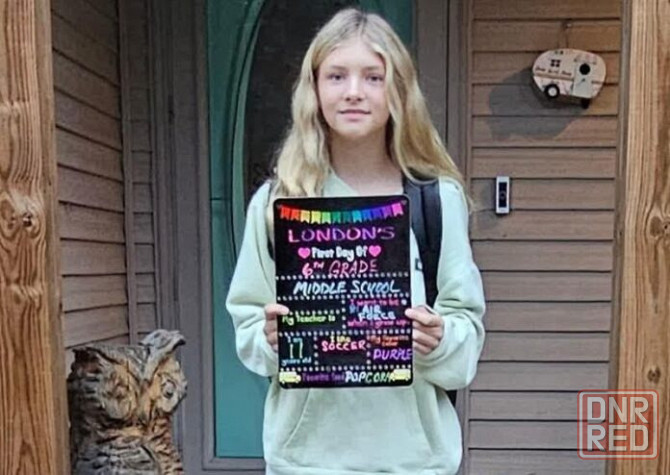 LONDON'S
First Day Of
6TH GRADE
MIDDLE SCHOOL
My Teacher is
I want to be
AIR
FORCE
When I grow up
I am
years old
I like
SOCCER
My favorite
color
PURPLE
Favorite food POPCORN
DNR
RED